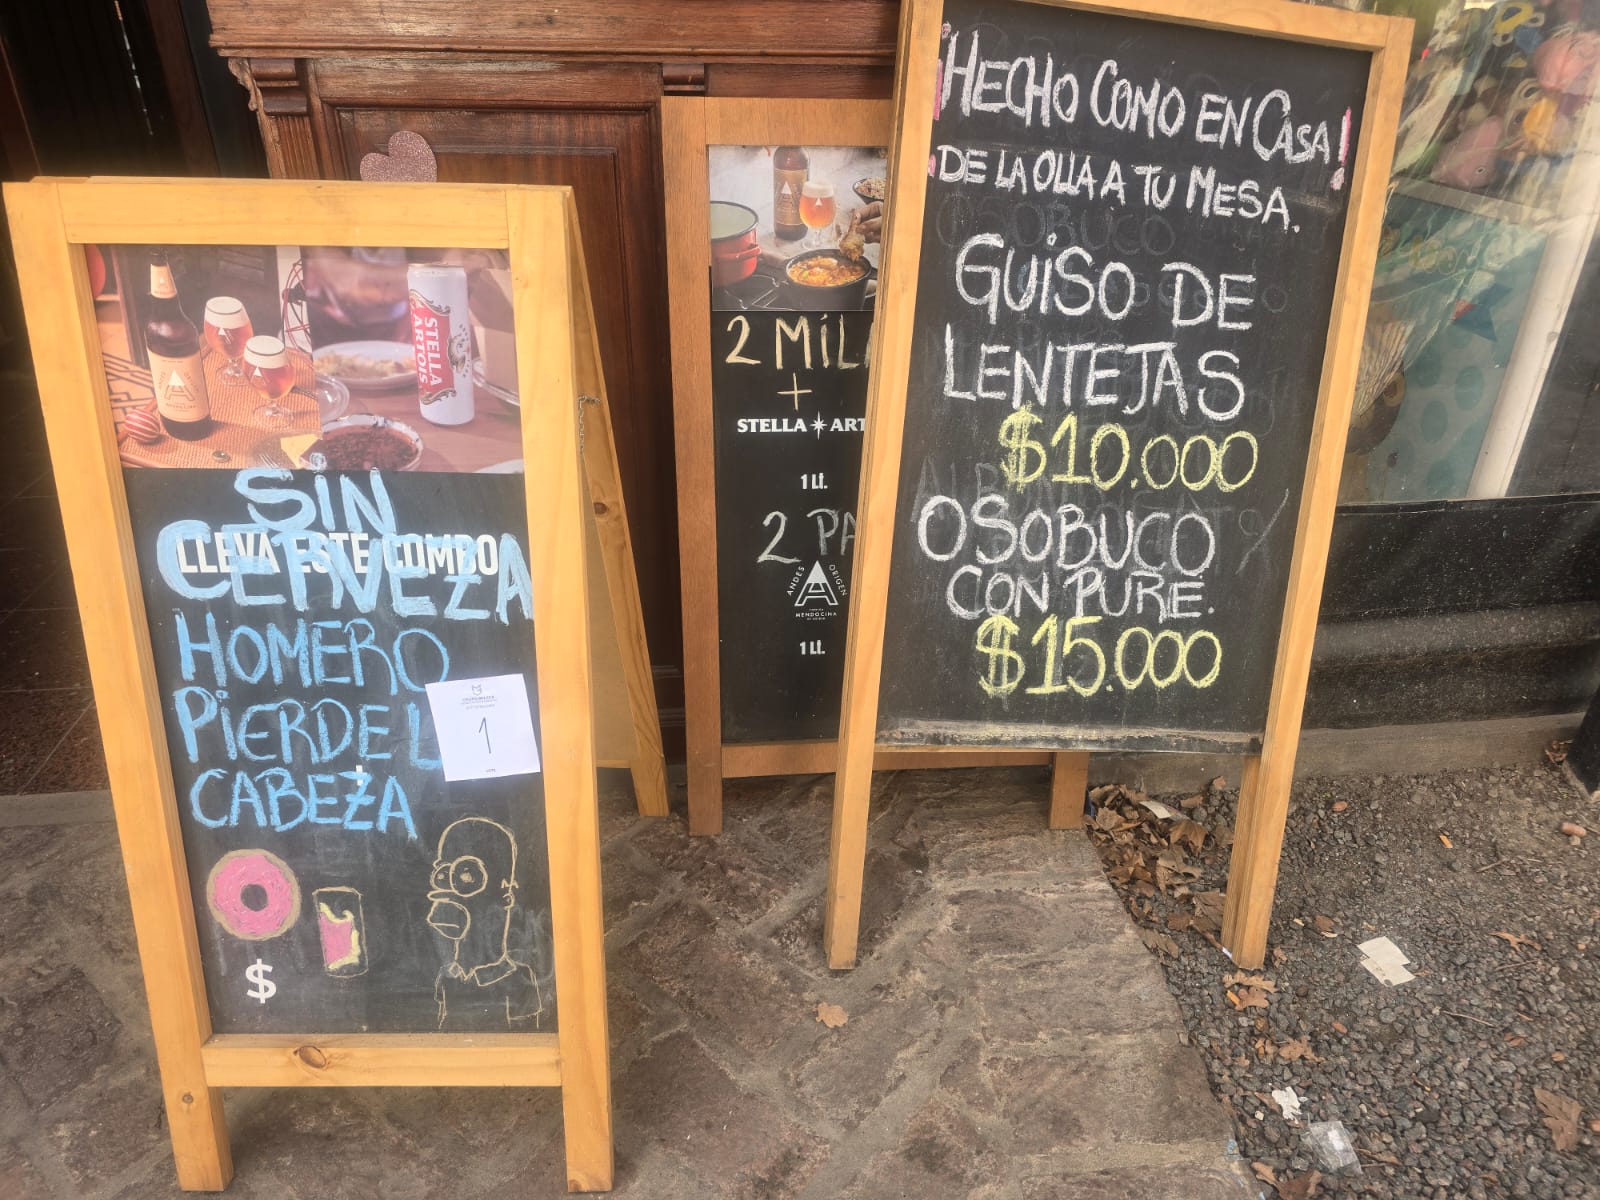 SIN
CERVEZA
LLEVA ESTE COMBO
HOMERO
PIERDE L
CABEZA
1
$
STELLA
ARTOIS
2 MIL
+
STELLA ART
1 Lt.
2 PA
ANDES ORIGEN
MENDOCINA
1 Lt.
¡HECHO COMO EN CASA!
DE LA OLLA A TU MESA.
GUISO DE
LENTEJAS
$10.000
OSOBUCO
CON PURE.
$15.000